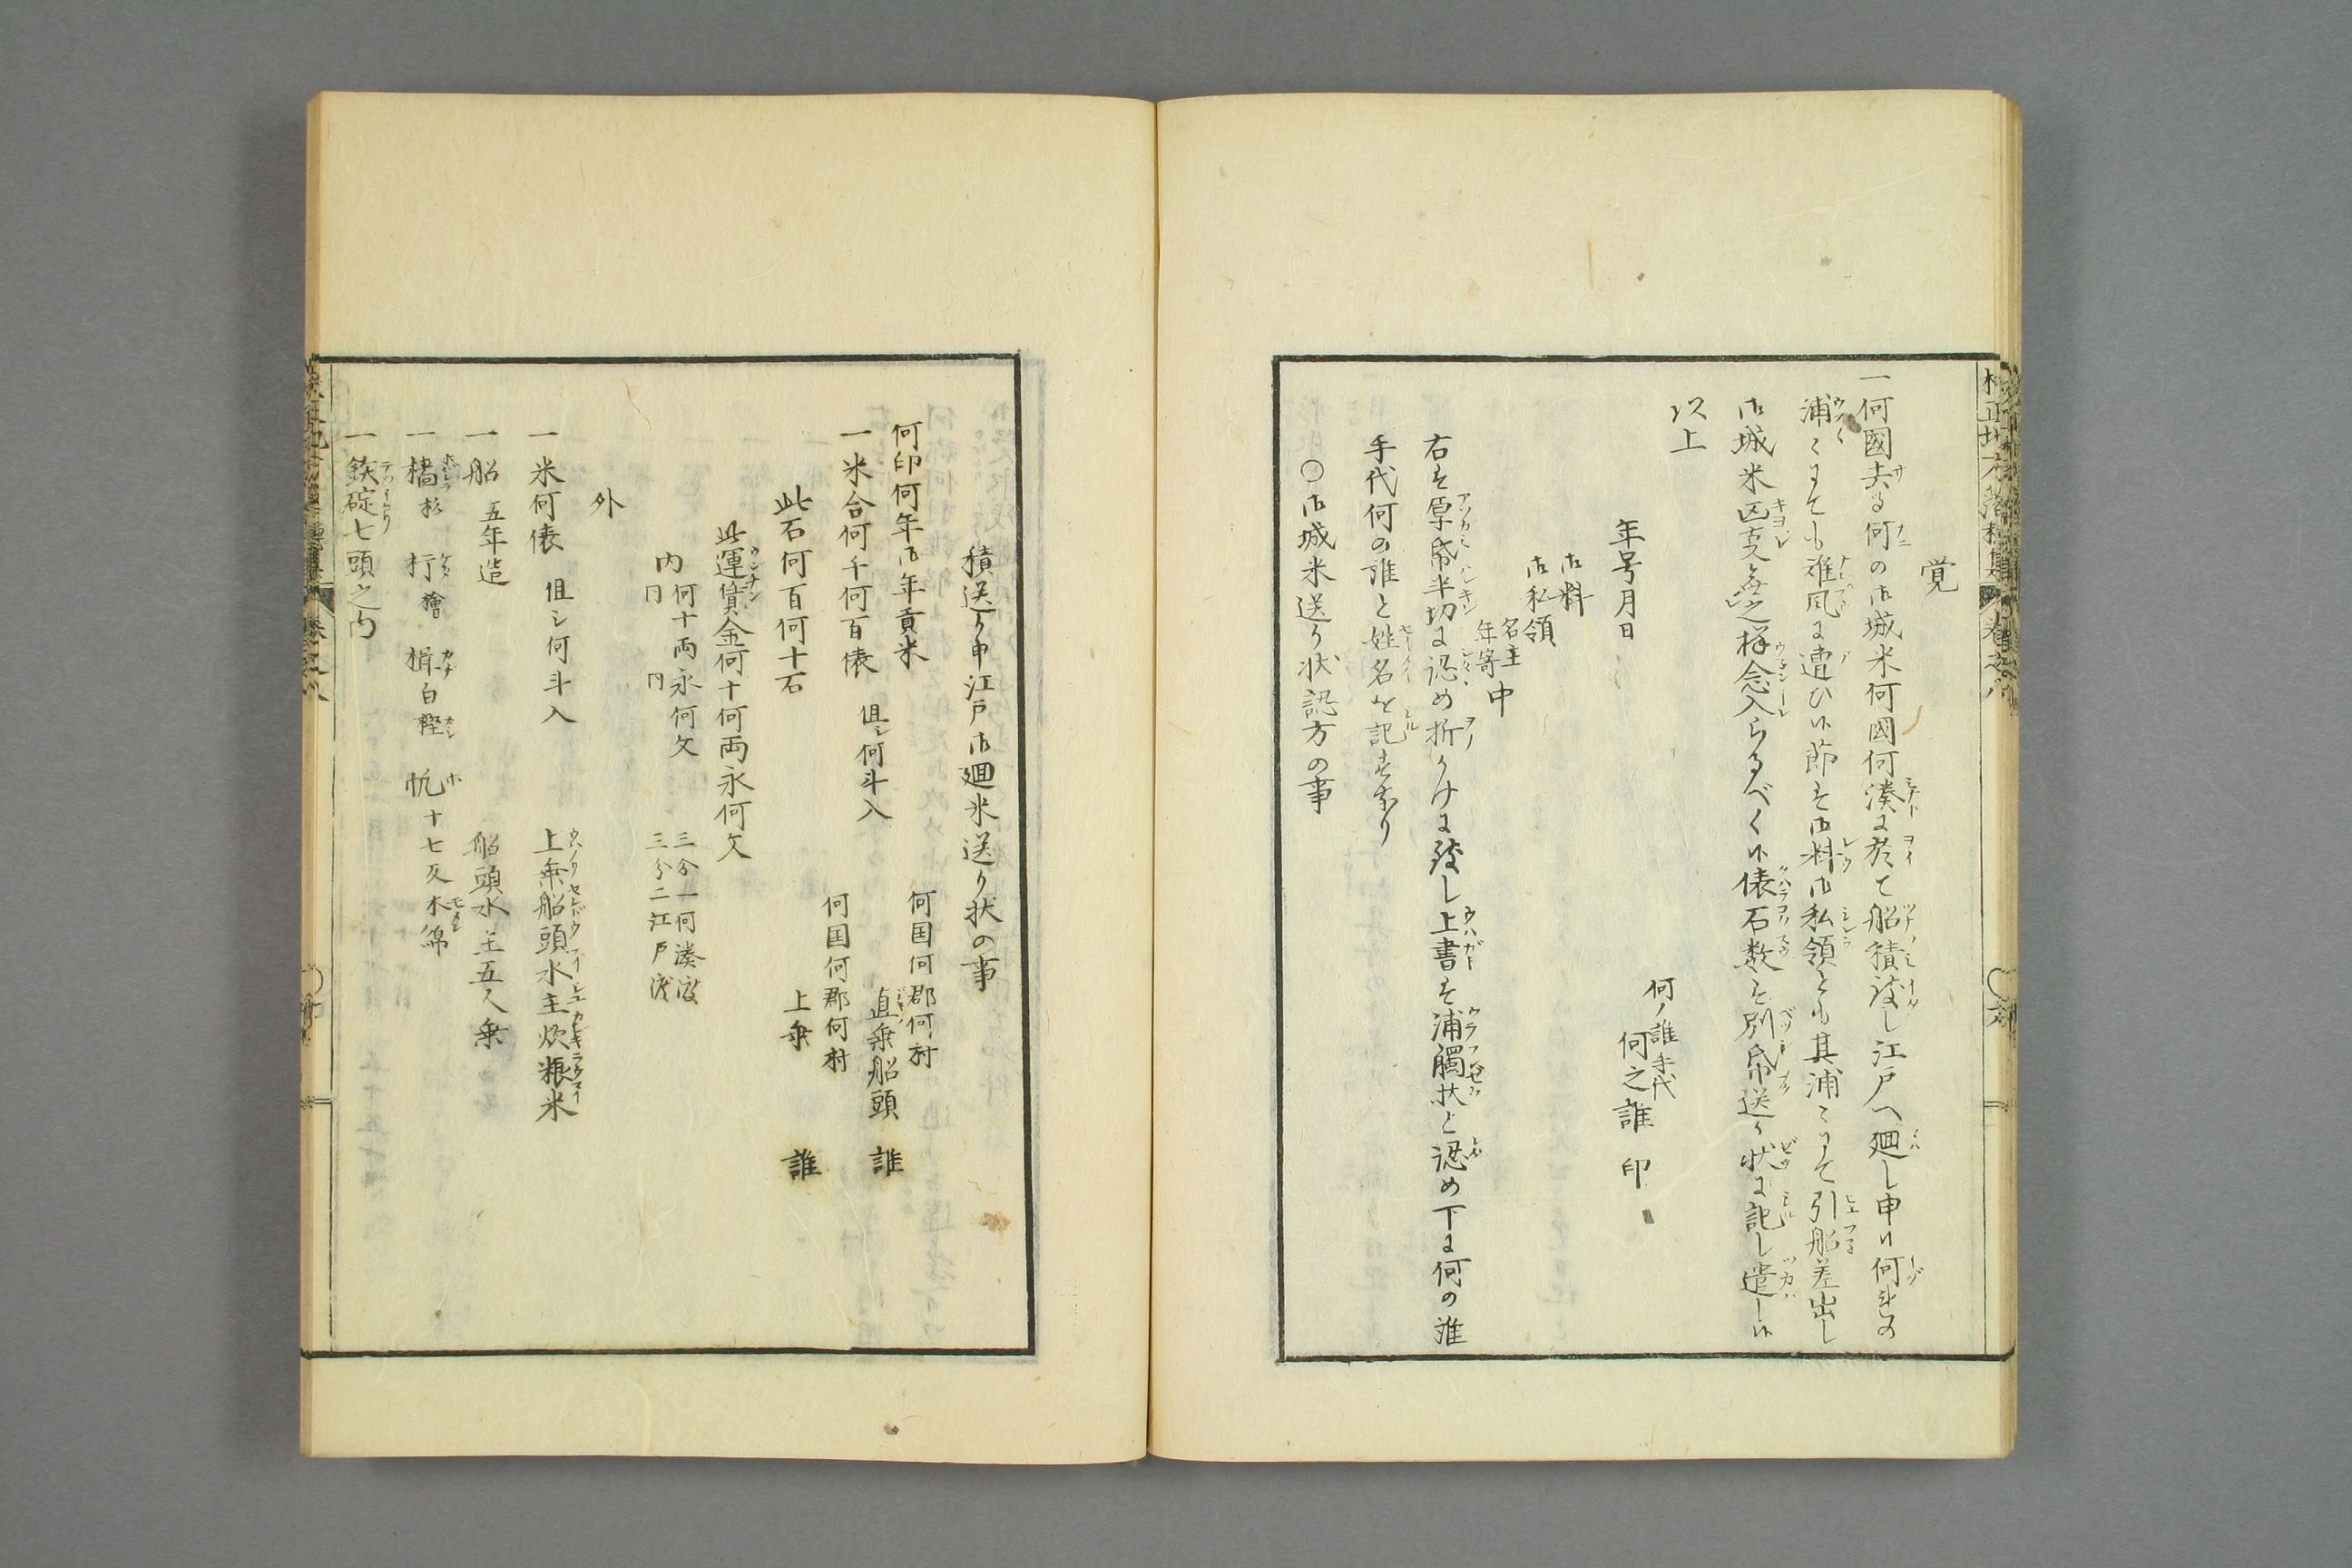 覚
一何國去る何の御城米何國何湊に於て船積致し江戸へ廻し申候何きの
浦々にても難風に遭ひ候節は御料御私領とも其浦々にて引船差出し
御城米凶変無之様念入らるべく候俵石数は別帋送り状に記し遣し候
以上
何ノ誰手代
何之誰 印
年号月日
御料
御私領
名主
年寄 中
右は厚帋半切に認め折かけに致し上書は浦觸状と認め下に何の誰
手代何の誰と姓名を記すなり
○御城米送り状認方の事
積送り申江戸御廻米送り状の事
何印何年御年貢米
何国何郡何村
直乗船頭 誰
一米合何千何百俵 但シ何斗入
何国何郡何村
上乗 誰
此石何百何十石
此運賃金何十何両永何文
内 何十両永何文 三分一何湊渡
円 円 三分二江戸渡
外
一米何俵 但シ何斗入 上乗船頭水主炊粮米
一船 五年造 船頭水主五人乗
一檣杉 桁檜 楫白樫 帆十七反木綿
一鉄碇七頭之内